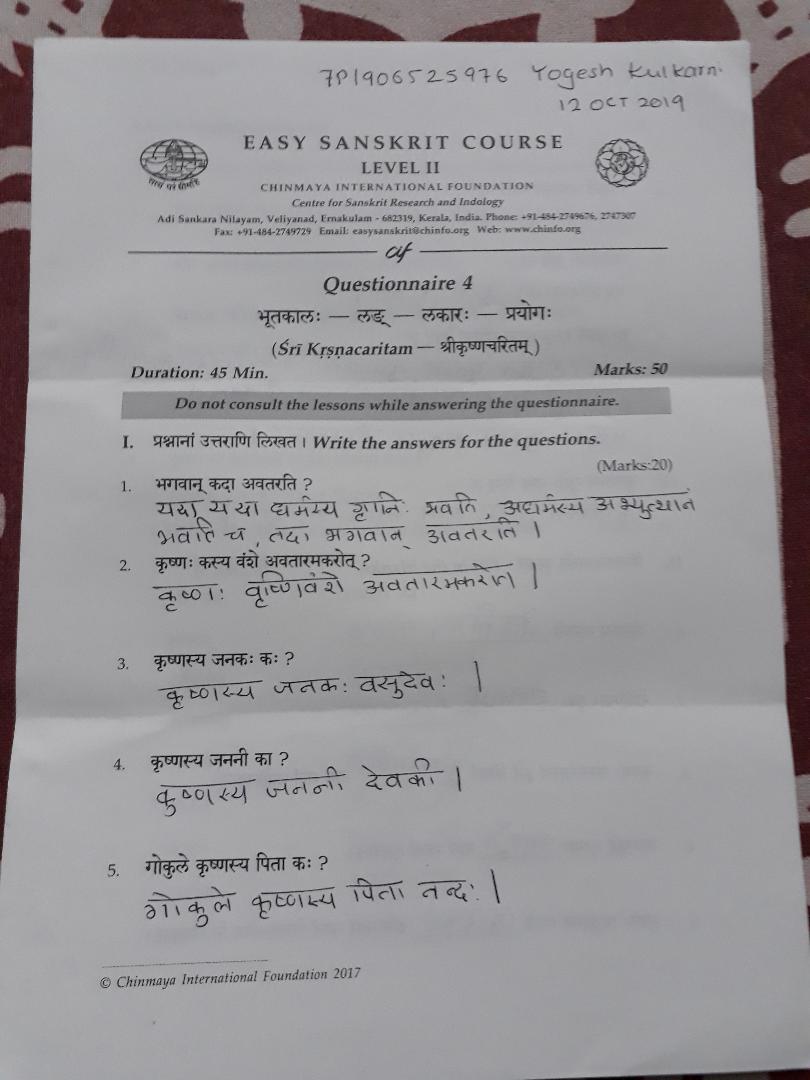 7P1906525976 Yogesh Kulkarni
12 OCT 2019
EASY SANSKRIT COURSE
LEVEL II
CHINMAYA INTERNATIONAL FOUNDATION
Centre for Sanskrit Research and Indology
Adi Sankara Nilayam, Veliyanad, Ernakulam - 682319, Kerala, India. Phone: +91-484-2749676, 2747307
Fax: +91-484-2749729 Email: easysanskrit@chinfo.org Web: www.chinfo.org
Questionnaire 4
भूतकालः — लङ् — लकारः — प्रयोगः
(Śrī Kṛṣṇacaritam — श्रीकृष्णचरितम्)
Duration: 45 Min. Marks: 50
Do not consult the lessons while answering the questionnaire.
I. प्रश्नानां उत्तराणि लिखत । Write the answers for the questions.
(Marks:20)
1. भगवान् कदा अवतरति ?
यदा यदा धर्मस्य ग्लानिः भवति, अधर्मस्य अभ्युत्थानं
भवति च, तदा भगवान् अवतरति ।
2. कृष्णः कस्य वंशे अवतारमकरोत् ?
कृष्णः वृष्णिवंशे अवतारमकरोत् ।
3. कृष्णस्य जनकः कः ?
कृष्णस्य जनकः वसुदेवः ।
4. कृष्णस्य जननी का ?
कृष्णस्य जननी देवकी ।
5. गोकुले कृष्णस्य पिता कः ?
गोकुले कृष्णस्य पिता नन्दः ।
© Chinmaya International Foundation 2017